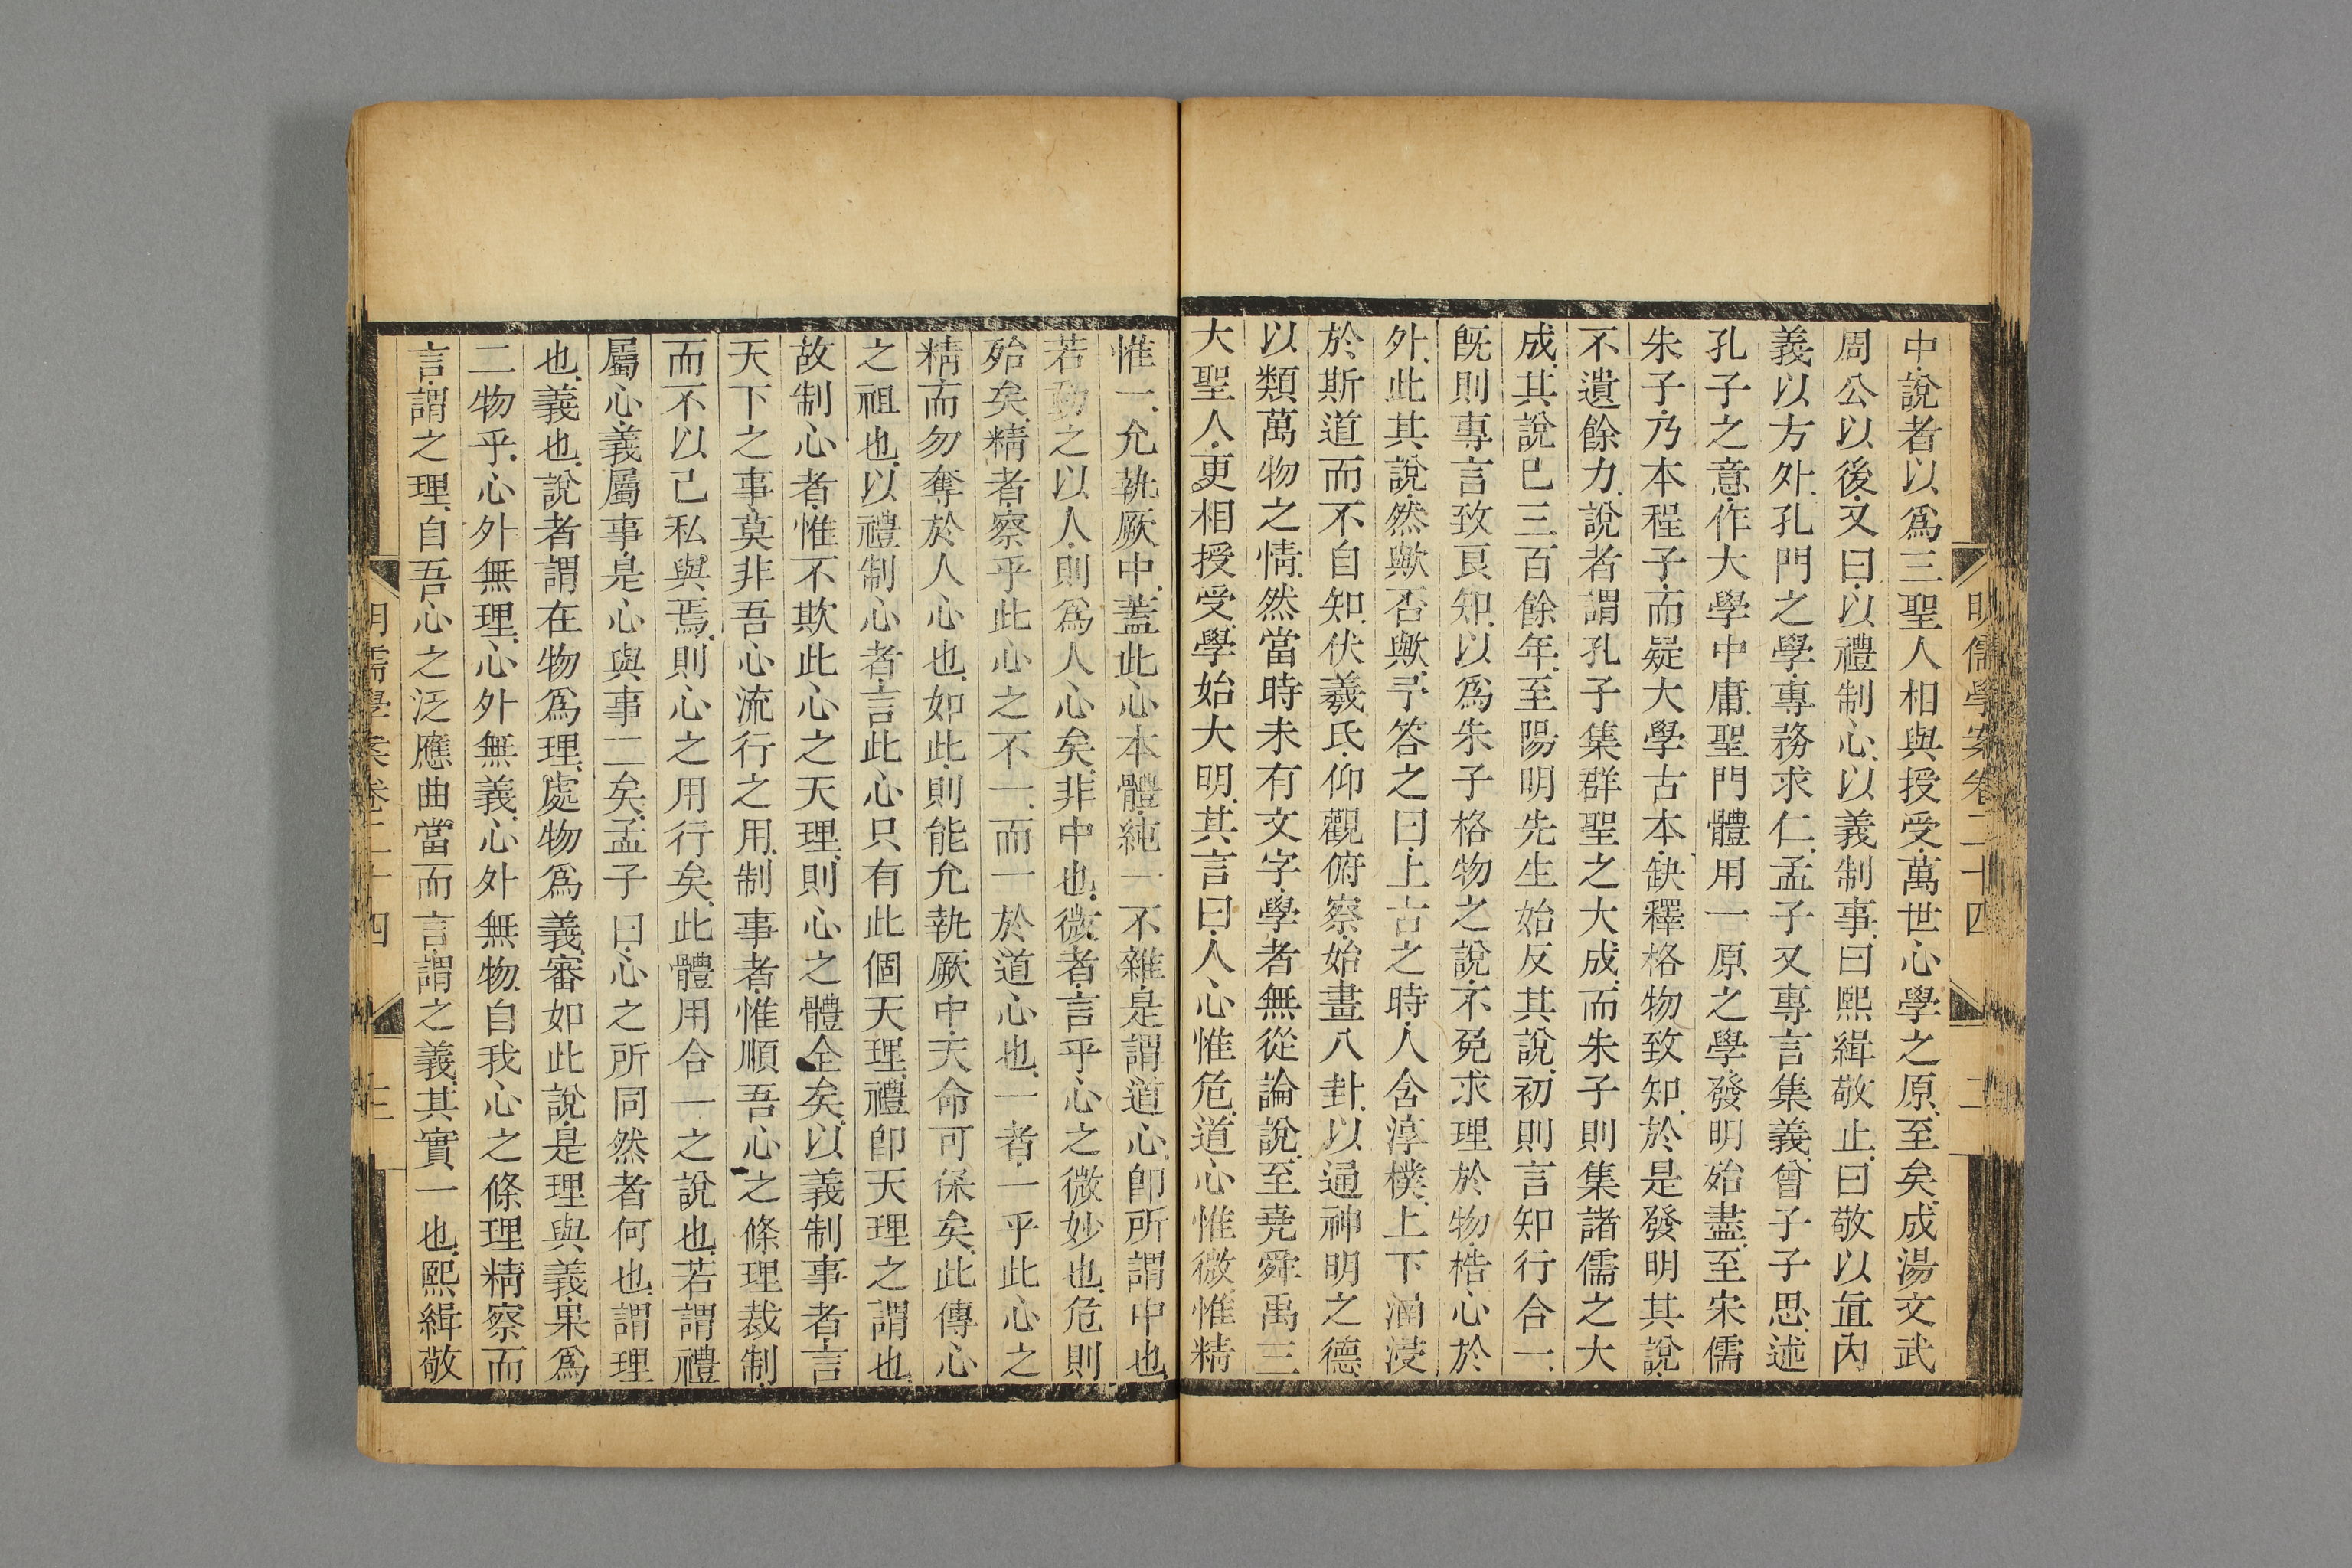 明儒學案卷二十四
二
中說者以爲三聖人相與授受萬世心學之原至矣成湯文武
周公以後又曰以禮制心以義制事曰熙緝敬止曰敬以直內
義以方外孔門之學專務求仁孟子又專言集義曾子子思述
孔子之意作大學中庸聖門體用一原之學發明殆盡至宋儒
朱子乃本程子而疑大學古本缺釋格物致知於是發明其說
不遺餘力說者謂孔子集群聖之大成而朱子則集諸儒之大
成其說已三百餘年至陽明先生始反其說初則言知行合一
旣則專言致良知以爲朱子格物之說不免求理於物梏心於
外此其說然歟否歟予答之曰上古之時人含淳樸上下涵浸
於斯道而不自知伏羲氏仰觀俯察始畫八卦以通神明之德
以類萬物之情然當時未有文字學者無從論說至堯舜禹三
大聖人更相授受學始大明其言曰人心惟危道心惟微惟精
惟一允執厥中蓋此心本體純一不雜是謂道心卽所謂中也
若動之以人則爲人心矣非中也微者言乎心之微妙也危則
殆矣精者察乎此心之不一而一於道心也一者一乎此心之
精而勿奪於人心也如此則能允執厥中天命可保矣此傳心
之祖也以禮制心者言此心只有此個天理禮卽天理之謂也
故制心者惟不欺此心之天理則心之體全矣以義制事者言
天下之事莫非吾心流行之用制事者惟順吾心之條理裁制
而不以己私與焉則心之用行矣此體用合一之說也若謂禮
屬心義屬事是心與事二矣孟子曰心之所同然者何也謂理
也義也說者謂在物爲理處物爲義審如此說是理與義果爲
二物乎心外無理心外無義心外無物自我心之條理精察而
言謂之理自吾心之泛應曲當而言謂之義其實一也熙緝敬
明儒學案卷二十四
三